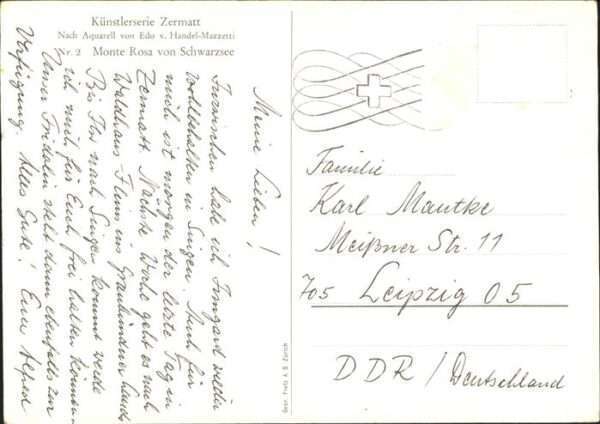 Künstlerserie Zermatt
Nach Aquarell von Edo v. Handel-Mazzetti
Nr. 2 Monte Rosa von Schwarzsee
Meine Lieben!
Inzwischen habe ich Irmgard wieder
wohlbehalten in Singen. Auch für
mich ist morgen der letzte Tag in
Zermatt. Nächste Woche geht es nach
Waldhaus Flims ins Graubündner Land.
Bis Ihr nach Singen kommt werde
ich mich für Euch frei halten können.
Unser Fridolin steht dann ebenfalls zur
Verfügung. Alles Gute! Euer Alfred
Familie
Karl Mautke
Meißner Str. 11
705 Leipzig 05
DDR/Deutschland
Fretz A.G. Zürich